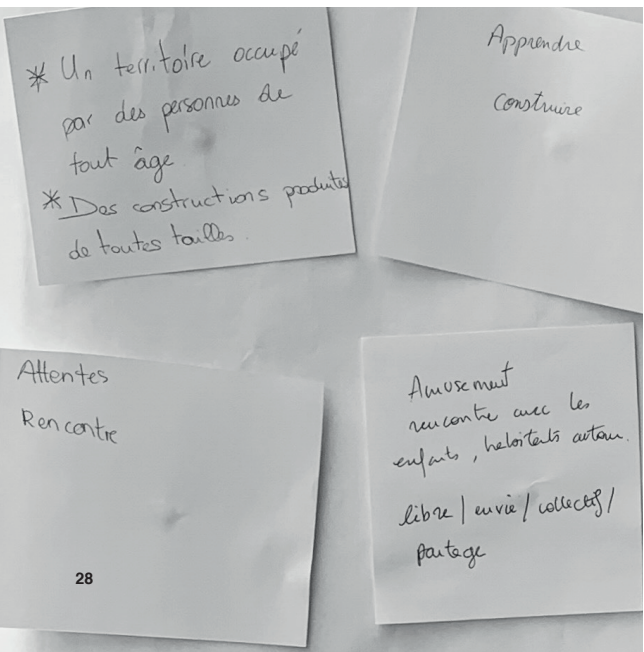 * Un territoire occupé
par des personnes de
tout âge
* Des constructions produites
de toutes tailles.
Apprendre
Construire
Attentes
Rencontre
28
Amusement
rencontre avec les
enfants, habitants autour.
libre / envie / collectif /
partage